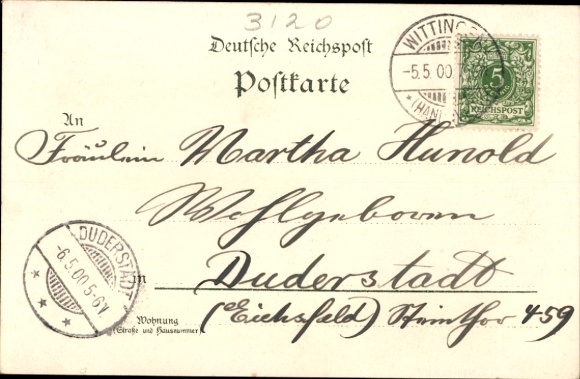 3120
Deutsche Reichspost
Postkarte
WITTING
-5.5.00
*(HAN
5
REICHSPOST
An
Fräulein Martha Hunold
Wohlgeboren
DUDERSTADT
-6.5.00.5-6V
in Duderstadt
(Eichsfeld) Steinthor 459
Wohnung
(Straße und Hausnummer)